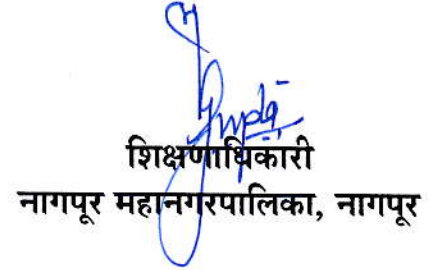 शिक्षणाधिकारी
नागपूर महानगरपालिका, नागपूर